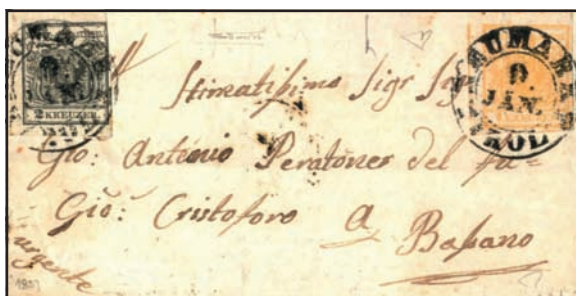 2 KREUZER
NEUMARKT
9.
JÄN.
TIROL
Stimatissimo Sigr Sigr
Gio: Antonio Peratoner del fu=
Gio: Cristoforo a
Bassano
urgente